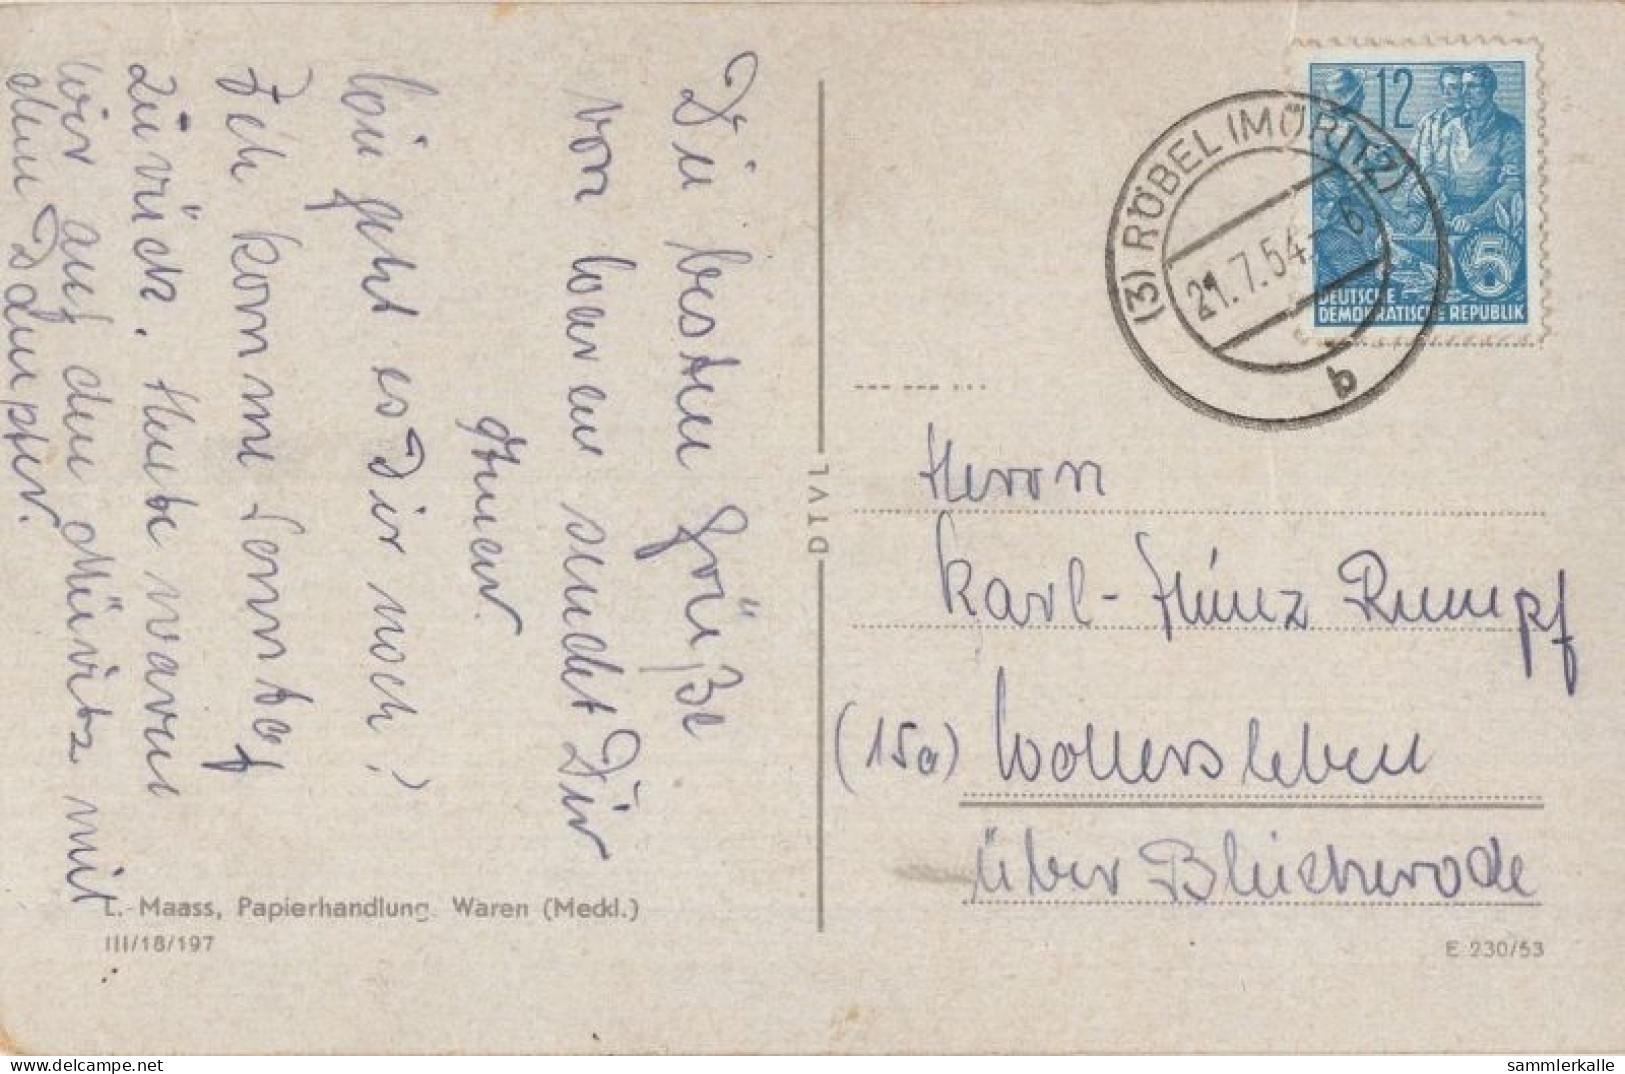 Die besten Grüße
von Waren sendet Dir
Wie geht es Dir noch?
Ich komme Sonntag
zurück. Heute waren
wir auf den Müritz mit
den Dampfer.
DTVL
12
5
DEUTSCHE
DEMOKRATISCHE REPUBLIK
(3) RÖBEL (MÜRITZ)
21.7.54-6
b
Herrn
Karl-Heinz Rumpf
(15a) Wollersleben
über Bleicherode
L. Maass, Papierhandlung. Waren (Meckl.)
III/18/197
E 230/53
delcampe.net
sammlerkalle